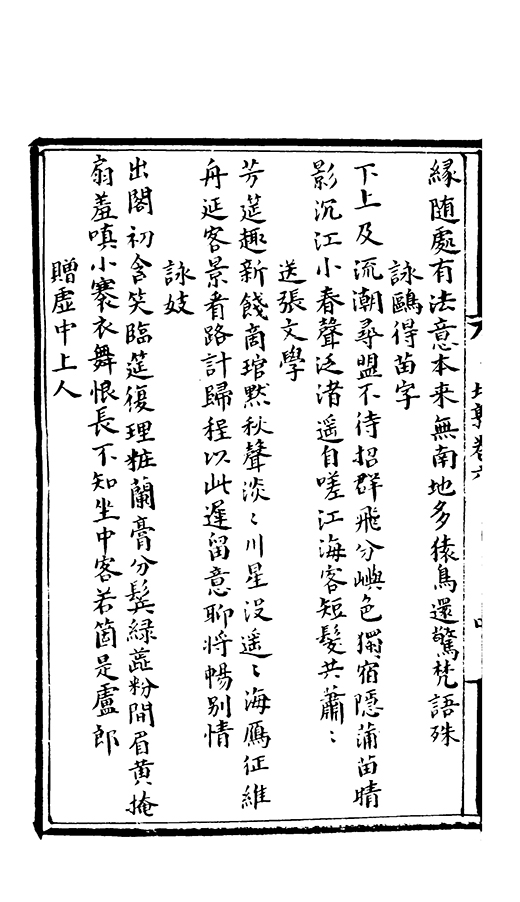 緣隨處有法意本来無南地多猿鳥還驚梵語殊
詠鷗得苗字
下上及流潮尋盟不待招群飛分嶼色獨宿隱蒲苗晴
影沉江小春聲泛渚遥自嗟江海客短髮共蕭〻
送張文學
芳莚趣新餞啇琯黙秋聲淡〻川星没遥〻海鴈征維
舟延客景看路計歸程以此遲留意聊将暢别情
詠妓
出閣初含笑臨莚復理粧蘭膏分鬂緑蕋粉間眉黄掩
扇羞嗔小褰衣舞恨長不知坐中客若箇是盧郎
贈虚中上人
卷六